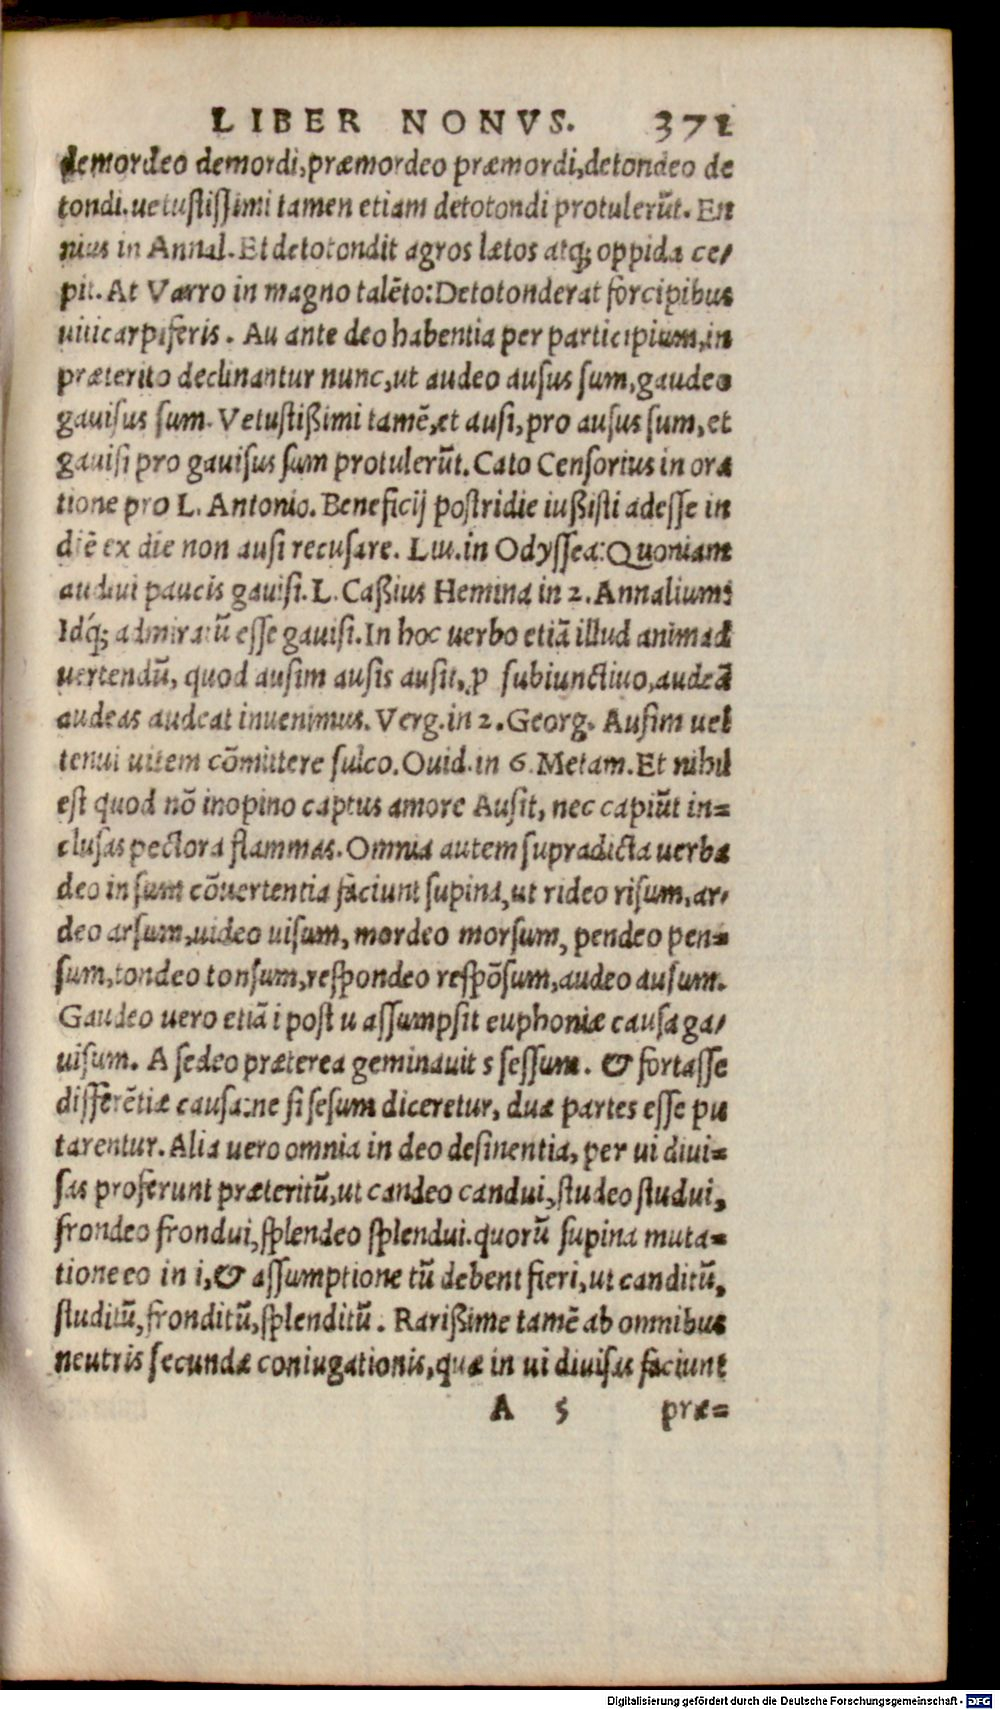 LIBER NONVS. 371
demordeo demordi, præmordeo præmordi, detondeo de
tondi. uetustissimi tamen etiam detotondi protulerũt. En
nius in Annal. Et detotondit agros lætos atq; oppida ce/
pit. At Varro in magno talẽto: Detotonderat forcipibus
uiticarpiferis. Au ante deo habentia per participium, in
præterito declinantur nunc, ut audeo ausus sum, gaudeo
gauisus sum. Vetustißimi tamẽ, et ausi, pro ausus sum, et
gauisi pro gauisus sum protulerũt. Cato Censorius in ora
tione pro L. Antonio. Beneficij postridie iußisti adesse in
diẽ ex die non ausi recusare. Liu. in Odyssea: Quoniam
audiui paucis gauisi. L. Caßius Hemina in 2. Annalium:
Idq́; admiratũ esse gauisi. In hoc uerbo etiã illud animad
uertendũ, quod ausim ausis ausit, ꝓ subiunctiuo, audeã
audeas audeat inuenimus. Verg. in 2. Georg. Ausim uel
tenui uitem cõmittere sulco. Ouid. in 6. Metam. Et nihil
est quod nõ inopino captus amore Ausit, nec capiũt in=
clusas pectora flammas. Omnia autem supradicta uerba
deo in sum cõuertentia faciunt supina, ut rideo risum, ar/
deo arsum, uideo uisum, mordeo morsum, pendeo pen=
sum, tondeo tonsum, respondeo respõsum, audeo ausum.
Gaudeo uero etiã i post u assumpsit euphoniæ causa ga/
uisum. A sedeo præterea geminauit s sessum. & fortasse
differẽtiæ causa: ne si sesum diceretur, duæ partes esse pu
tarentur. Alia uero omnia in deo desinentia, per ui diui=
sas proferunt præteritũ, ut candeo candui, studeo studui,
frondeo frondui, splendeo splendui. quorũ supina muta=
tione eo in i, & assumptione tũ debent fieri, ut canditũ,
studitũ, fronditũ, splenditũ. Rarißime tamẽ ab omnibus
neutris secundæ coniugationis, quæ in ui diuisas faciunt
A 5 præ=
Digitalisierung gefördert durch die Deutsche Forschungsgemeinschaft - DFG